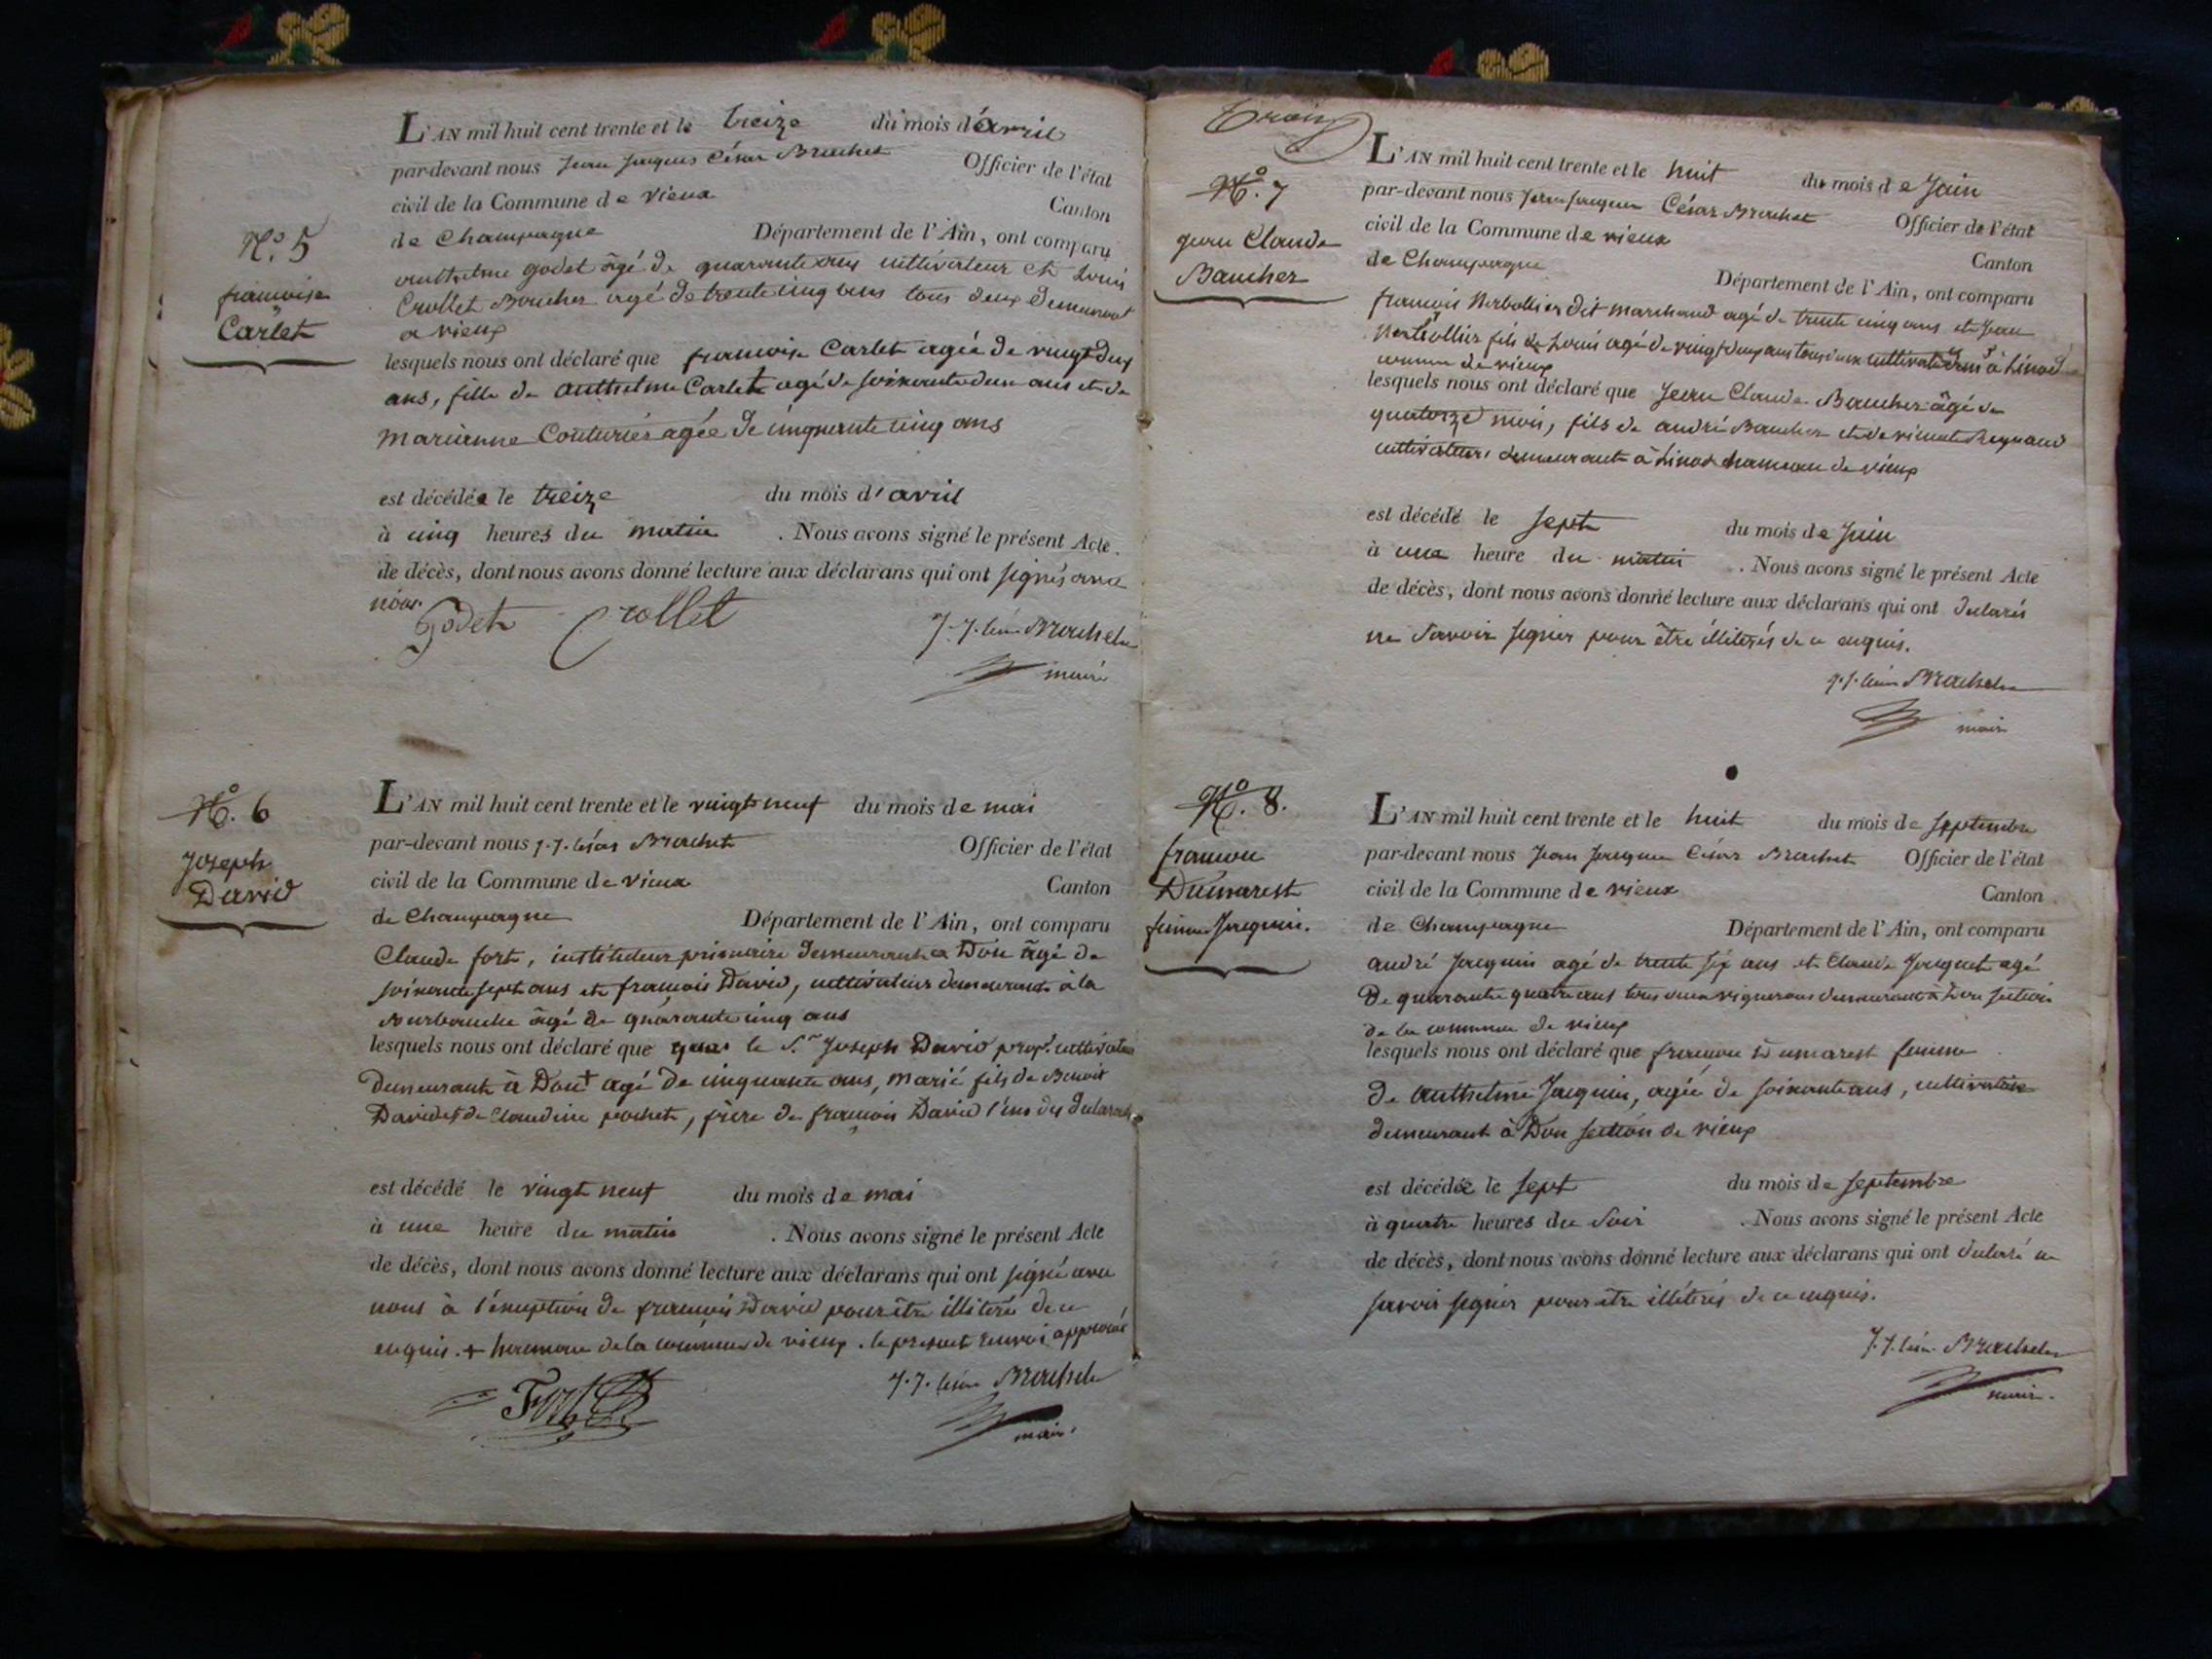 L'AN mil huit cent trente et le treize du mois d'avril
par-devant nous Jean Jacques César Brachet Officier de l'état
civil de la Commune de vieux Canton
de Champagne Département de l'Ain, ont comparu
N.° 5
françoise
Carlet
anthelme godet âgé de quarante ans cultivateur et Louis
Crollet Boucher agé de trente cinq ans tous deux demeurant
a vieux
lesquels nous ont déclaré que françoise Carlet agée de vingt deux
ans, fille de anthelme Carlet agé de soixante deux ans et de
marianne Couturier agée de cinquante cinq ans
est décédée le treize du mois d'avril
à cinq heures du matin . Nous avons signé le présent Acte
de décès, dont nous avons donné lecture aux déclarans qui ont signés avec
nous.
Godet Crollet J. J. César Brachet
maire
N.° 6
Joseph
David
L'AN mil huit cent trente et le vingt neuf du mois de mai
par-devant nous J. J. César Brachet Officier de l'état
civil de la Commune de vieux Canton
de Champagne Département de l'Ain, ont comparu
Claude fort, instituteur primaire demeurant a Don âgé de
soixante sept ans et françois David, cultivateur demeurant à la
âgé de quarante cinq ans
lesquels nous ont déclaré que le S.r Joseph David prop.re cultivateur
demeurant à Don + agé de cinquante ans, marié fils de Benoit
David et de Claudine pochet, frère de françois David l'un des déclarants
est décédé le vingt neuf du mois de mai
à une heure du matin . Nous avons signé le présent Acte
de décès, dont nous avons donné lecture aux déclarans qui ont signé avec
nous à l'exception de françois David pour être illitéré de ce
enquis. + hameau de la commune de vieux. le présent renvoi approuvé
Fort J. J. César Brachet
maire.
Trois
N.° 7
jean Claude
Baucher
L'AN mil huit cent trente et le huit du mois de Juin
par-devant nous Jean Jacques César Brachet Officier de l'état
civil de la Commune de vieux Canton
de Champagne Département de l'Ain, ont comparu
françois dit marchand agé de trente cinq ans et Jean
fils de Louis agé de vingt deux ans tous deux cultivateurs à Linod
commune de vieux
lesquels nous ont déclaré que Jean Claude Baucher âgé de
quatorze mois, fils de andré Baucher et de Reynaud
cultivateurs demeurant à Linod hameau de vieux
est décédé le sept du mois de Juin
à une heure du matin . Nous avons signé le présent Acte
de décès, dont nous avons donné lecture aux déclarans qui ont déclarés
ne savoir signer pour être illitérés de ce enquis.
J. J. César Brachet
maire
N.° 8.
françoise
Dumarest
femme Jacquin.
L'AN mil huit cent trente et le huit du mois de septembre
par-devant nous Jean Jacques César Brachet Officier de l'état
civil de la Commune de vieux Canton
de Champagne Département de l'Ain, ont comparu
andré Jacquin agé de trente six ans et Claude Jacquet agé
de quarante quatre ans tous deux vignerons demeurant à Don section
de la commune de vieux
lesquels nous ont déclaré que françoise Dumarest femme
de anthelme Jacquin, agée de soixante ans, cultivatrice
demeurant à Don section de vieux
est décédée le sept du mois de septembre
à quatre heures du soir . Nous avons signé le présent Acte
de décès, dont nous avons donné lecture aux déclarans qui ont déclaré ne
savoir signer pour être illétérés de ce enquis.
J. J. César Brachet
maire.